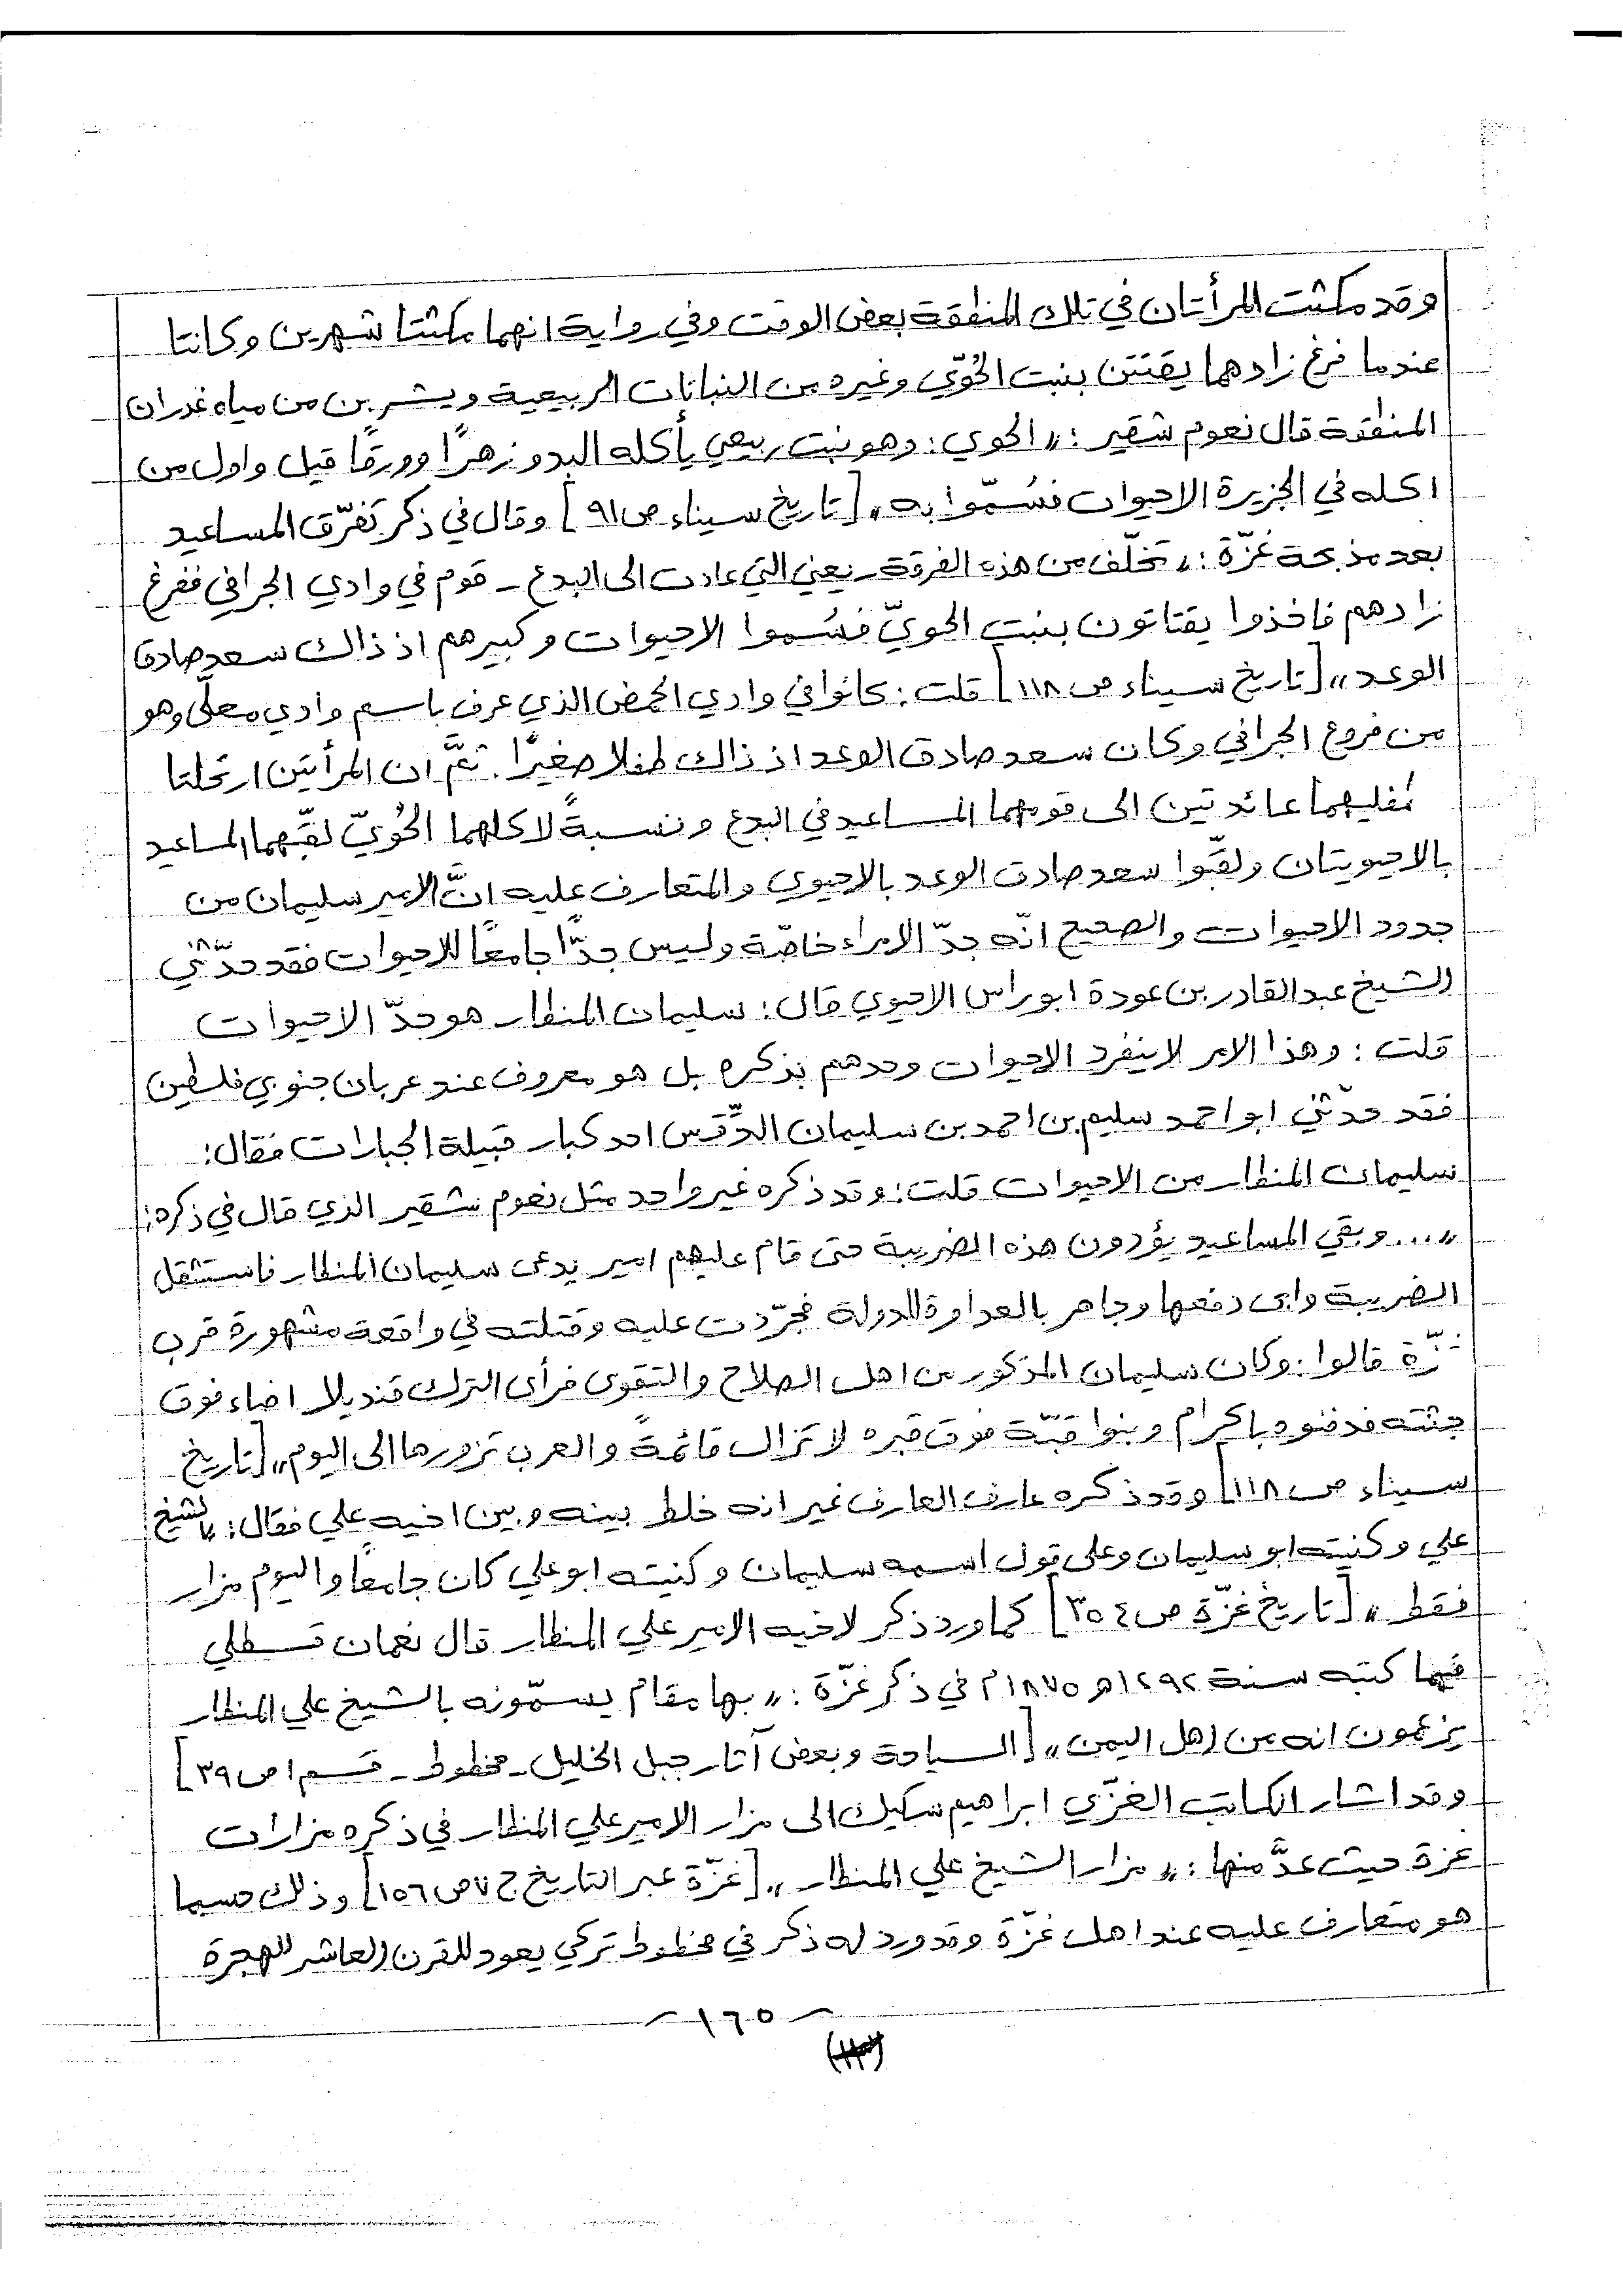 وقد مكثت المرأتان في تلك المنطقة بعض الوقت وفي رواية انهما مكثتا شهرين وكانتا
عندما فرغ زادهما يقتتن بنبت الحُوّي وغيره من النباتات الربيعية ويشربن من مياه غدران
المنطقة قال نعوم شقير : „ الحوي : وهو نبت ربيعي يأكله البدو زهرًا وورقًا قيل واول من
اكله في الجزيرة الاحيوات فسُمّوا به „ [تاريخ سيناء ص ٩١] وقال في ذكر تفرّق المساعيد
بعد مذبحة غزّة : „ تخلّف من هذه الفرقة - يعني التي عادت الى البدع - قوم في وادي الجرافي ففرغ
زادهم فاخذوا يقتاتون بنبت الحويّ فسُموا الاحيوات وكبيرهم اذ ذاك سعد صادق
الوعد „ [تاريخ سيناء ص ١١٨] قلت : كانوا في وادي الحمض الذي عرف باسم وادي معلّى وهو
من فروع الجرافي وكان سعد صادق الوعد اذ ذاك طفلا صغيرًا . ثمَّ ان المرأتين ارتحلتا
بطفليهما عائدتين الى قومهما المساعيد في البدع ونسبةً لاكلهما الحُويّ لقّبهما المساعيد
بالاحيويتان ولقّبوا سعد صادق الوعد بالاحيوي والمتعارف عليه انَّ الامير سليمان من
جدود الاحيوات والصحيح انّه جدّ الامراء خاصّة وليس جدًّا جامعًا للاحيوات فقد حدّثني
الشيخ عبدالقادر بن عودة ابو راس الاحيوي قال : سليمان المنطار هو جدّ الاحيوات
قلت : وهذا الامر لا ينفرد الاحيوات وحدهم بذكره بل هو معروف عند عربان جنوبي فلسطين
فقد حدّثني ابو احمد سليم بن احمد بن سليمان الدِّقَس احد كبار قبيلة الجبارات فقال :
سليمان المنطار من الاحيوات قلت : وقد ذكره غير واحد مثل نعوم شقير الذي قال في ذكره :
„ ... وبقي المساعيد يؤدون هذه الضريبة حتى قام عليهم امير يدعى سليمان المنطار فاستثقل
الضريبة وابى دفعها وجاهر بالعداوة للدولة فجرّدت عليه وقتلته في واقعة مشهورة قرب
غزّة قالوا : وكان سليمان المذكور من اهل الصلاح والتقوى فرأى الترك قنديلا اضاء فوق
جثته فدفنوه باكرام وبنوا قبّة فوق قبره لا تزال قائمةً والعرب تزورها الى اليوم „ [تاريخ
سيناء ص ١١٨] وقد ذكره عارف العارف غير انه خلط بينه وبين اخيه علي فقال : „ الشيخ
علي وكنيته ابو سليمان وعلى قول اسمه سليمان وكنيته ابو علي كان جامعًا واليوم مزار
فقط „ [تاريخ غزّة ص ٣٥٤] كما ورد ذكر لاخيه الامير علي المنطار قال نعمان قسطلي
فيما كتبه سنة ١٢٩٢ه‍ ١٨٧٥م في ذكر غزّة : „ بها مقام يسمّونه بالشيخ علي المنطار
يزعمون انه من اهل اليمن „ [السياحة وبعض آثار جبل الخليل - مخطوط - قسم ١ ص ٣٩]
وقد اشار الكاتب الغزّي ابراهيم سكيك الى مزار الامير علي المنطار في ذكره مزارات
غزة حيث عدَّ منها : „ مزار الشيخ علي المنطار „ [غزّة عبر التاريخ ج ٧ ص ١٥٦] وذلك حسبما
هو متعارف عليه عند اهل غزّة وقد ورد له ذكر في مخطوط تركي يعود للقرن العاشر للهجرة
- ١٦٥ -